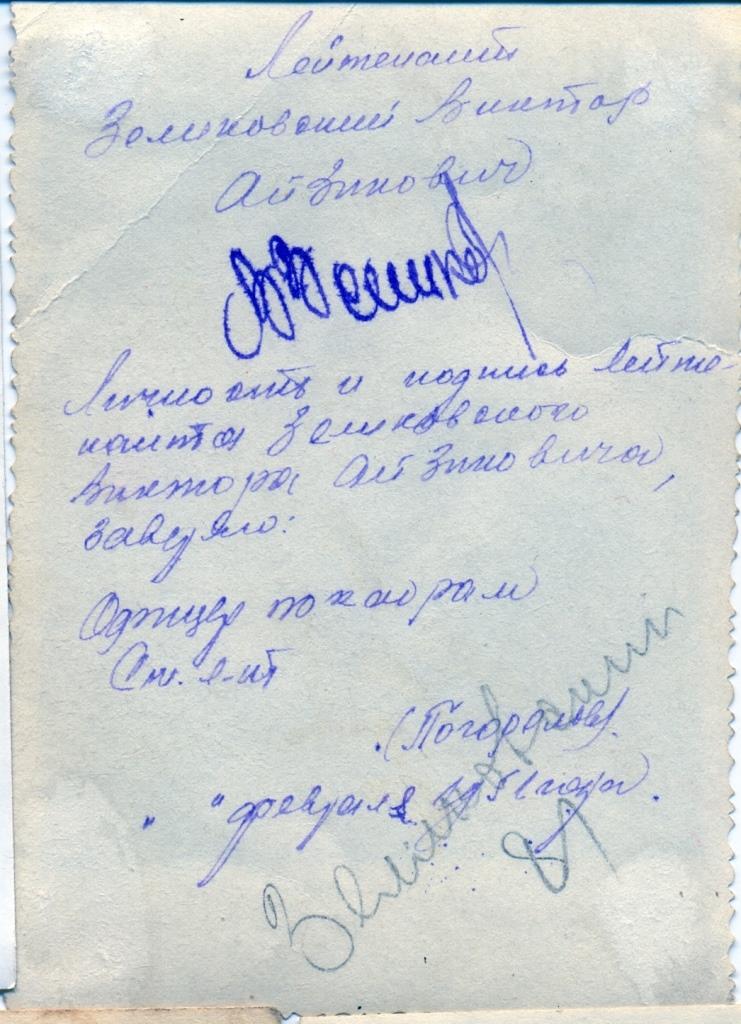 Лейтенант
Зеликовский Виктор
Айзикович
Личность и подпись лейте-
нанта Зеликовского
Виктора Айзиковича,
заверяю:
Офицер по кадрам
Ст. л-нт
(Погорелов)
" " февраля 1951 года.
Зеликовский